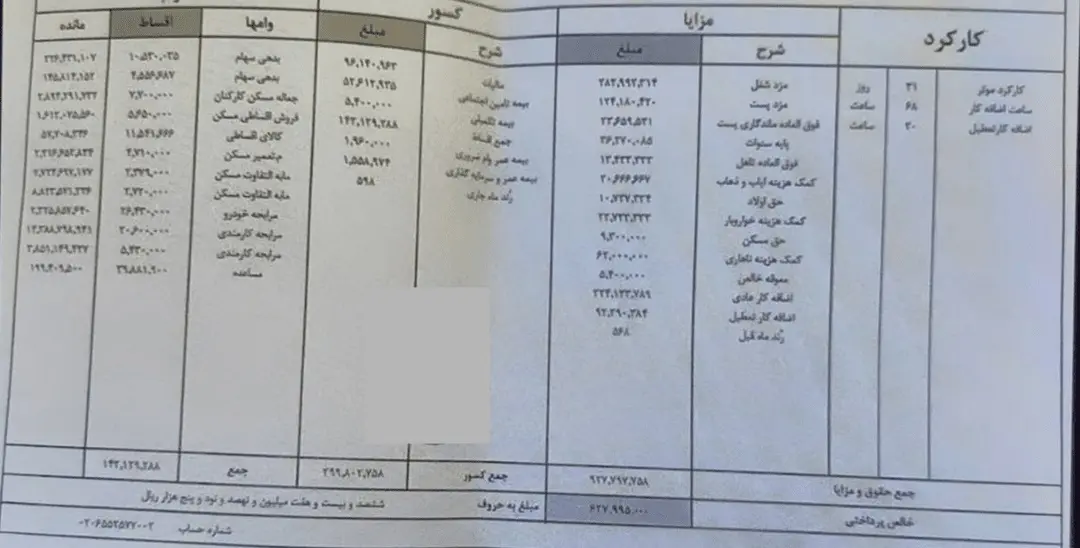 کارکرد
مزایا
کسور
شرح
مبلغ
شرح
مبلغ
وامها
اقساط
مانده
کارکرد موثر ۳۱ روز
ساعت اضافه کار ۶۸ ساعت
اضافه کارتعطیل ۲۰ ساعت
مزد شغل ۲۸۲,۹۹۲,۳۱۴
مزد پست ۱۲۴,۱۸۰,۴۲۰
فوق العاده ماندگاری پست ۲۳,۶۵۹,۵۳۱
پایه سنوات ۳۶,۲۷۰,۰۸۵
فوق العاده تاهل ۱۳,۴۳۳,۳۳۳
کمک هزینه ایاب و ذهاب ۲۰,۶۶۶,۶۶۷
حق اولاد ۱۰,۷۳۷,۳۳۴
کمک هزینه خواروبار ۲۲,۷۳۳,۳۳۳
حق مسکن ۹,۳۰۰,۰۰۰
کمک هزینه ناهاری ۶۲,۰۰۰,۰۰۰
معوقه خالص ۵,۴۰۰,۰۰۰
اضافه کار عادی ۲۲۴,۱۳۳,۷۸۹
اضافه کار تعطیل ۹۲,۲۹۰,۳۸۴
رُند ماه قبل ۵۶۸
مالیات ۹۶,۱۴۰,۹۶۳
بیمه تامین اجتماعی ۵۲,۶۱۲,۹۳۵
بیمه تکمیلی ۵,۴۰۰,۰۰۰
جمع اقساط ۱۴۲,۱۲۹,۲۸۸
بیمه عمر وام ضروری ۱,۹۶۰,۰۰۰
بیمه عمر و سرمایه گذاری ۱,۵۵۸,۹۷۴
رُند ماه جاری ۵۹۸
بدهی سهام ۱۰,۵۳۰,۰۳۵ ۳۳۶,۴۳۱,۱۰۷
بدهی سهام ۴,۵۵۶,۶۸۷ ۱۴۵,۸۱۴,۱۵۲
جعاله مسکن کارکنان ۷,۷۰۰,۰۰۰ ۲,۸۹۴,۲۹۱,۷۳۲
فروش اقساطی مسکن ۵,۶۵۰,۰۰۰ ۱,۶۱۲,۰۷۵,۵۶۰
کالای اقساطی ۱۱,۵۴۱,۶۶۶ ۵۷,۷۰۸,۳۴۶
م.تعمیر مسکن ۴,۷۱۰,۰۰۰ ۲,۳۱۶,۶۵۲,۸۳۴
مابه التفاوت مسکن ۲,۳۷۹,۰۰۰ ۲,۷۲۴,۶۹۲,۱۷۷
مابه التفاوت مسکن ۲,۷۲۰,۰۰۰ ۸,۸۲۳,۵۲۱,۳۳۶
مرابحه خودرو ۲۶,۴۳۰,۰۰۰ ۲,۳۲۵,۸۵۷,۶۴۰
مرابحه کارمندی ۲۰,۶۰۰,۰۰۰ ۱۲,۳۸۸,۷۹۸,۹۴۱
مرابحه کارمندی ۵,۴۳۰,۰۰۰ ۳,۸۵۱,۱۴۹,۴۳۷
مساعده ۳۹,۸۸۱,۹۰۰ ۱۹۹,۴۰۹,۵۰۰
جمع حقوق و مزایا ۹۲۷,۷۹۷,۷۵۸ جمع کسور ۲۹۹,۸۰۲,۷۵۸ جمع ۱۴۲,۱۲۹,۲۸۸
خالص پرداختی ۶۲۷,۹۹۵,۰۰۰ مبلغ به حروف ششصد و بیست و هفت میلیون و نهصد و نود و پنج هزار ریال
شماره حساب ۰۲۰۶۵۵۲۵۷۷۰۰۲